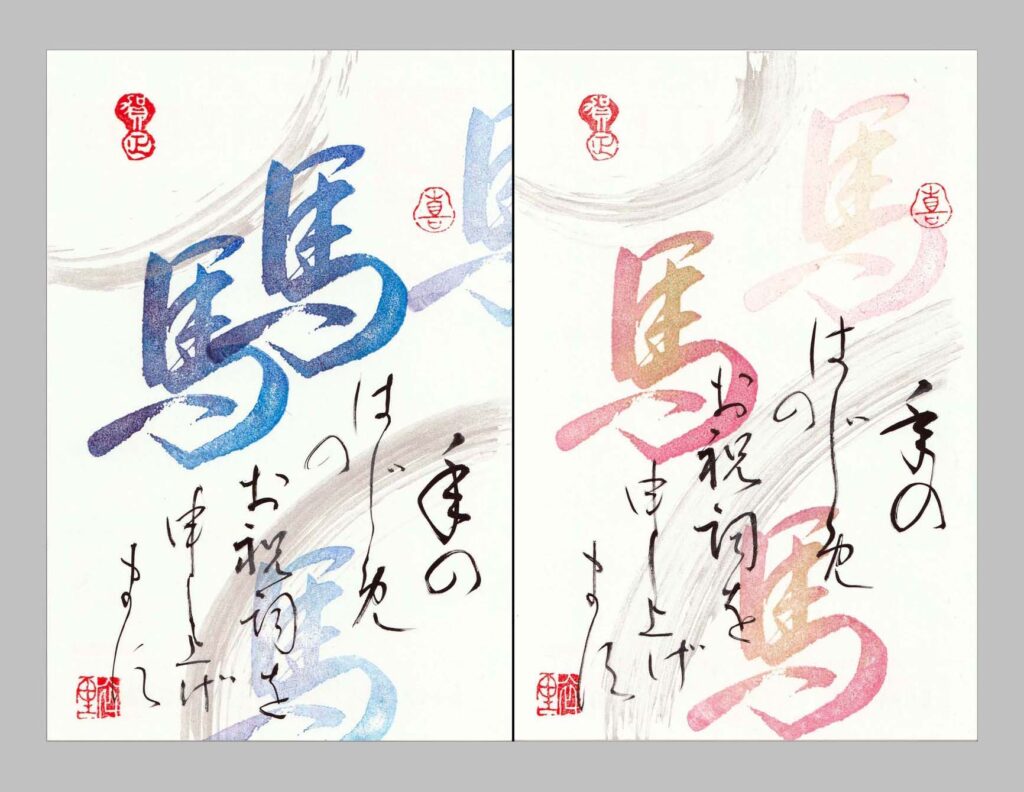 賀正
喜
馬
馬
馬
馬
年の
はじめ
の
お祝詞を
申し上げ
ます
賀正
喜
馬
馬
馬
年の
はじめ
の
お祝詞を
申し上げ
ます